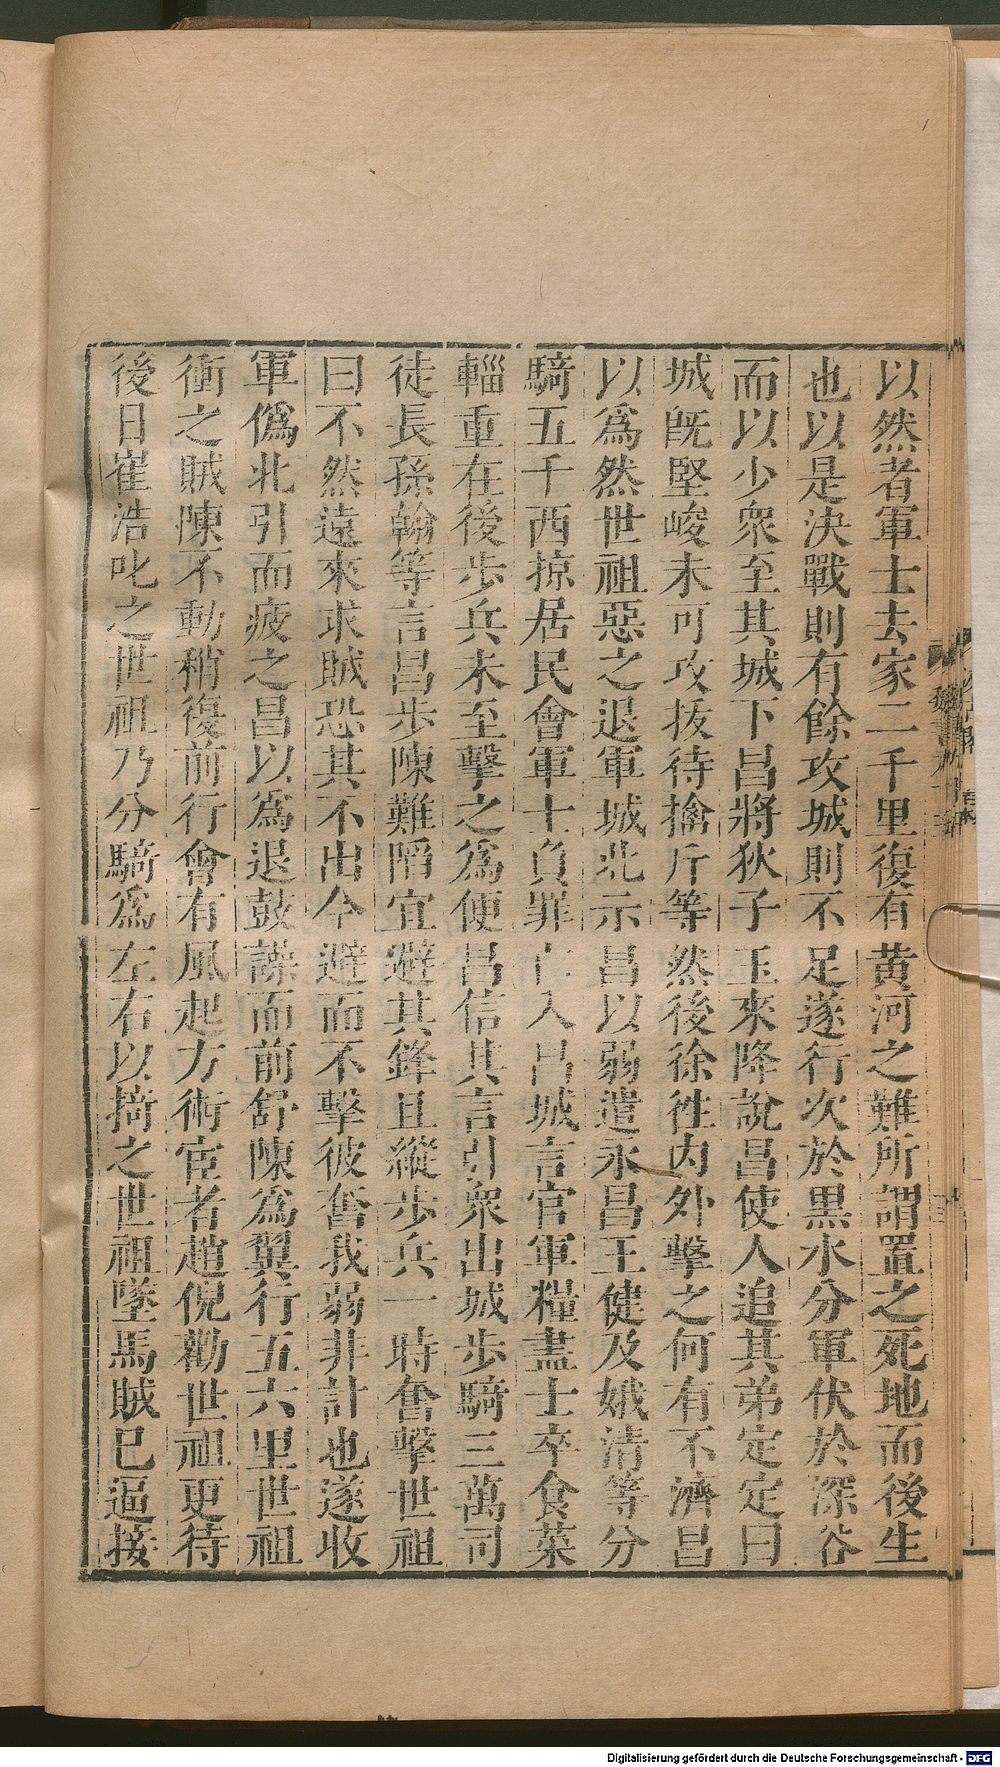 以然者軍士去家二千里復有黃河之難所謂置之死地而後生
也以是決戰則有餘攻城則不足遂行次於黒水分軍伏於深谷
而以少衆至其城下昌將狄子玉來降說昌使人追其弟定定曰
城旣堅峻未可攻拔待擒斤等然後徐往內外擊之何有不濟昌
以爲然世祖惡之退軍城北示昌以弱遣永昌王健及娥清等分
騎五千西掠居民會軍士負罪亡入昌城言官軍糧盡士卒食菜
輜重在後步兵未至擊之爲便昌信其言引衆出城步騎三萬司
徒長孫翰等言昌步陳難陷宜避其鋒且縱步兵一時奮擊世祖
曰不然遠來求賊恐其不出今避而不擊彼奮我弱非計也遂收
軍僞北引而疲之昌以爲退鼓譟而前舒陳爲翼行五六里世祖
衝之賊陳不動稍復前行會有風起方術宦者趙倪勸世祖更待
後日崔浩叱之世祖乃分騎爲左右以掎之世祖墜馬賊已逼接
Digitalisierung gefördert durch die Deutsche Forschungsgemeinschaft - DFG